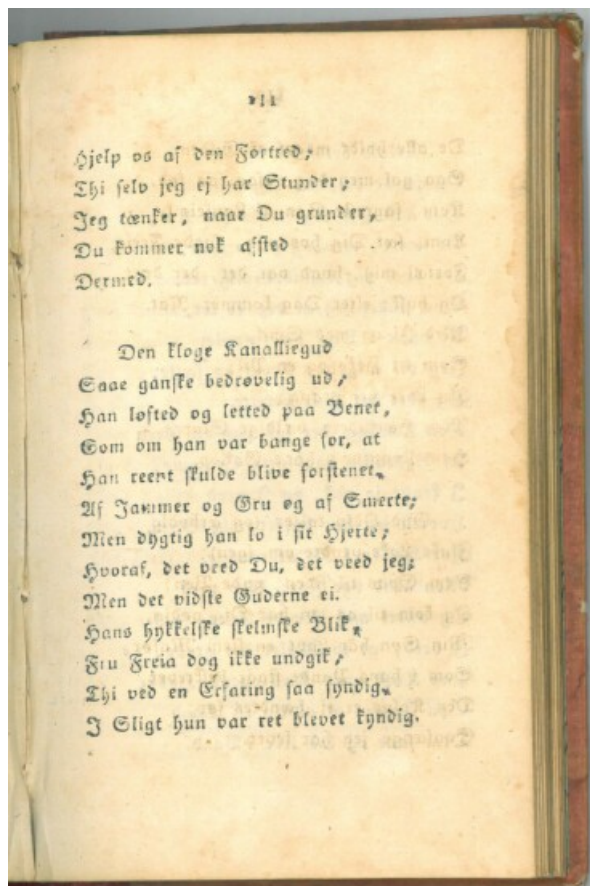 Hjelp os af den Fortred,
Thi selv jeg ej har Stunder,
Jeg tænker, naar Du grunder,
Du kommer nok afsted
Dermed.
Den kloge Kanalliegud
Saae ganske bedrøvelig ud,
Han løfted og letted paa Benet,
Som om han var bange for, at
Han reent skulde blive forstenet,
Af Jammer og Gru og af Smerte;
Men dygtig han lo i sit Hjerte;
Hvoraf, det veed Du, det veed jeg;
Men det vidste Guderne ei.
Hans hykkelske skelmske Blik,
Fru Freia dog ikke undgik,
Thi ved en Erfaring saa syndig,
I Sligt hun var ret blevet kyndig.